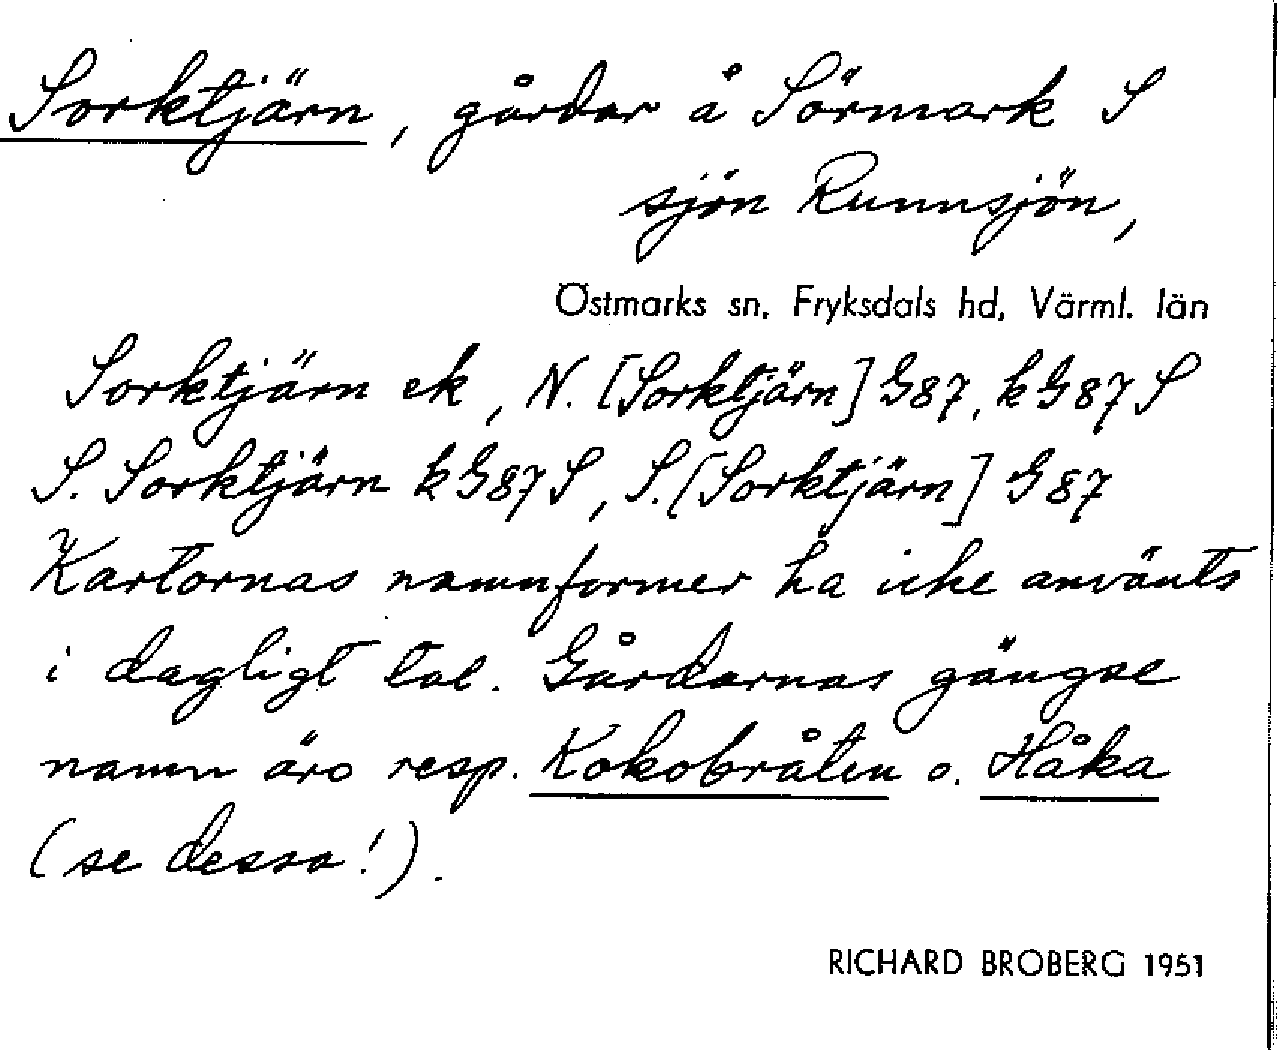 Sorktjärn, gårdar å Sörmark S
sjön Runnsjön,
Östmarks sn, Fryksdals hd, Värml. län
Sorktjärn ek, N. [Sorktjärn] G87, kG87 S
S. Sorktjärn kG87 S, S. [Sorktjärn] G87
Kartornas namnformer ha icke använts
i dagligt tal. Gårdarnas gängse
namn äro resp. Kokobråten o. Håka
(se dessa!).
RICHARD BROBERG 1951